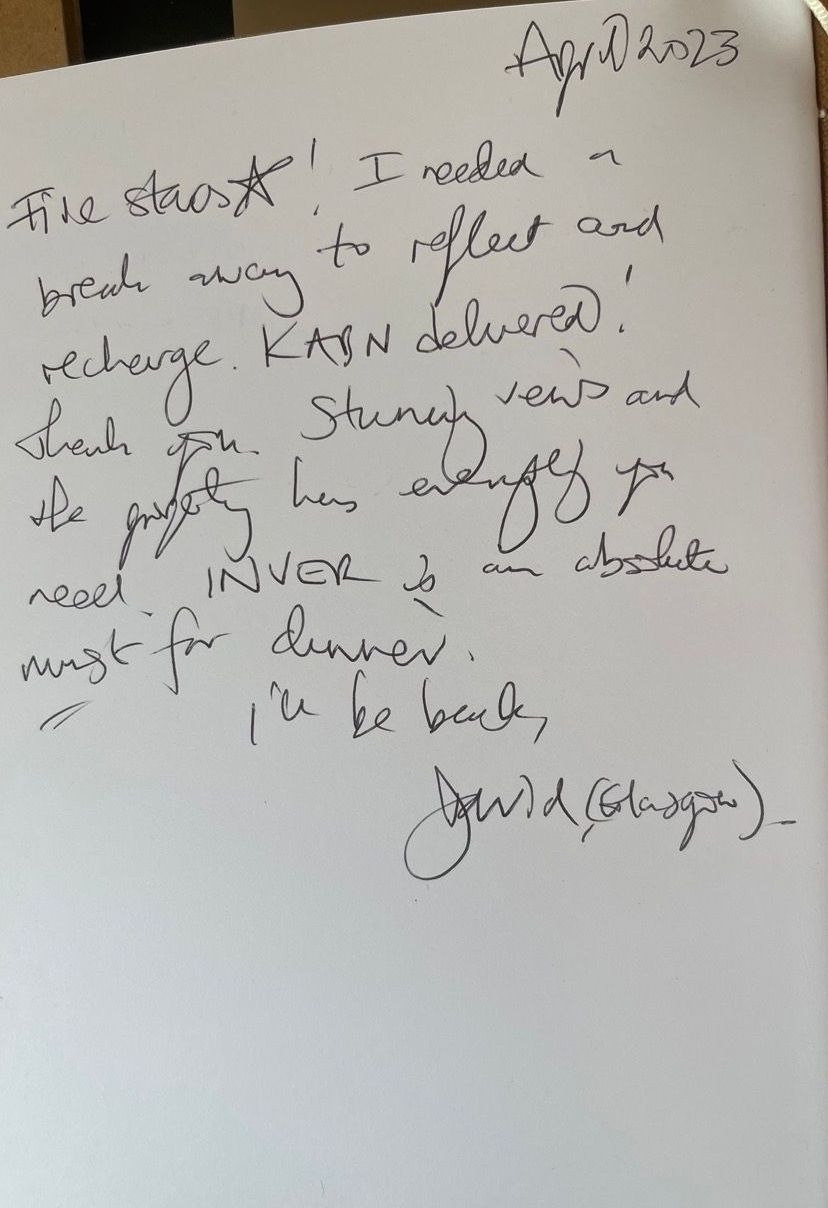 April 2023
Five stars☆! I needed a
break away to reflect and
recharge. KABN delivered!
Thank you. Stuning views and
the property has everything you
need. INVER is an absolute
must for dinner.
I'll be back,
David (Glasgow)